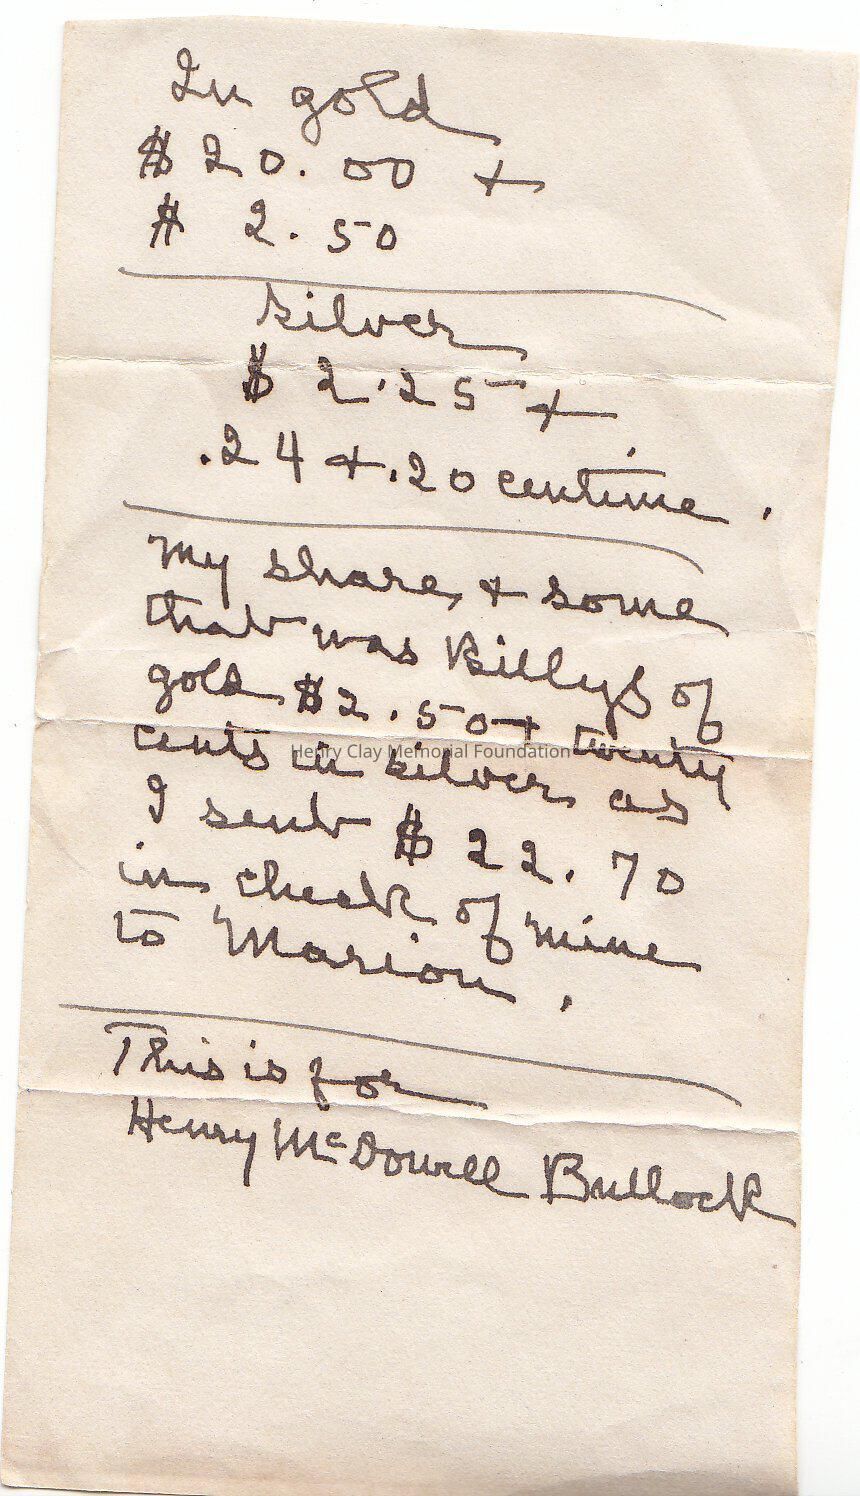 In gold
$20.00 +
$ 2.50
Silver
$ 2.25 +
.24 + .20 centime.
My share, + some
that was Billys of
gold $2.50 + twenty
cents in silver, as
Henry Clay Memorial Foundation
I sent $22.70
in check of mine
to Marion.
This is for
Henry McDowell Bullock